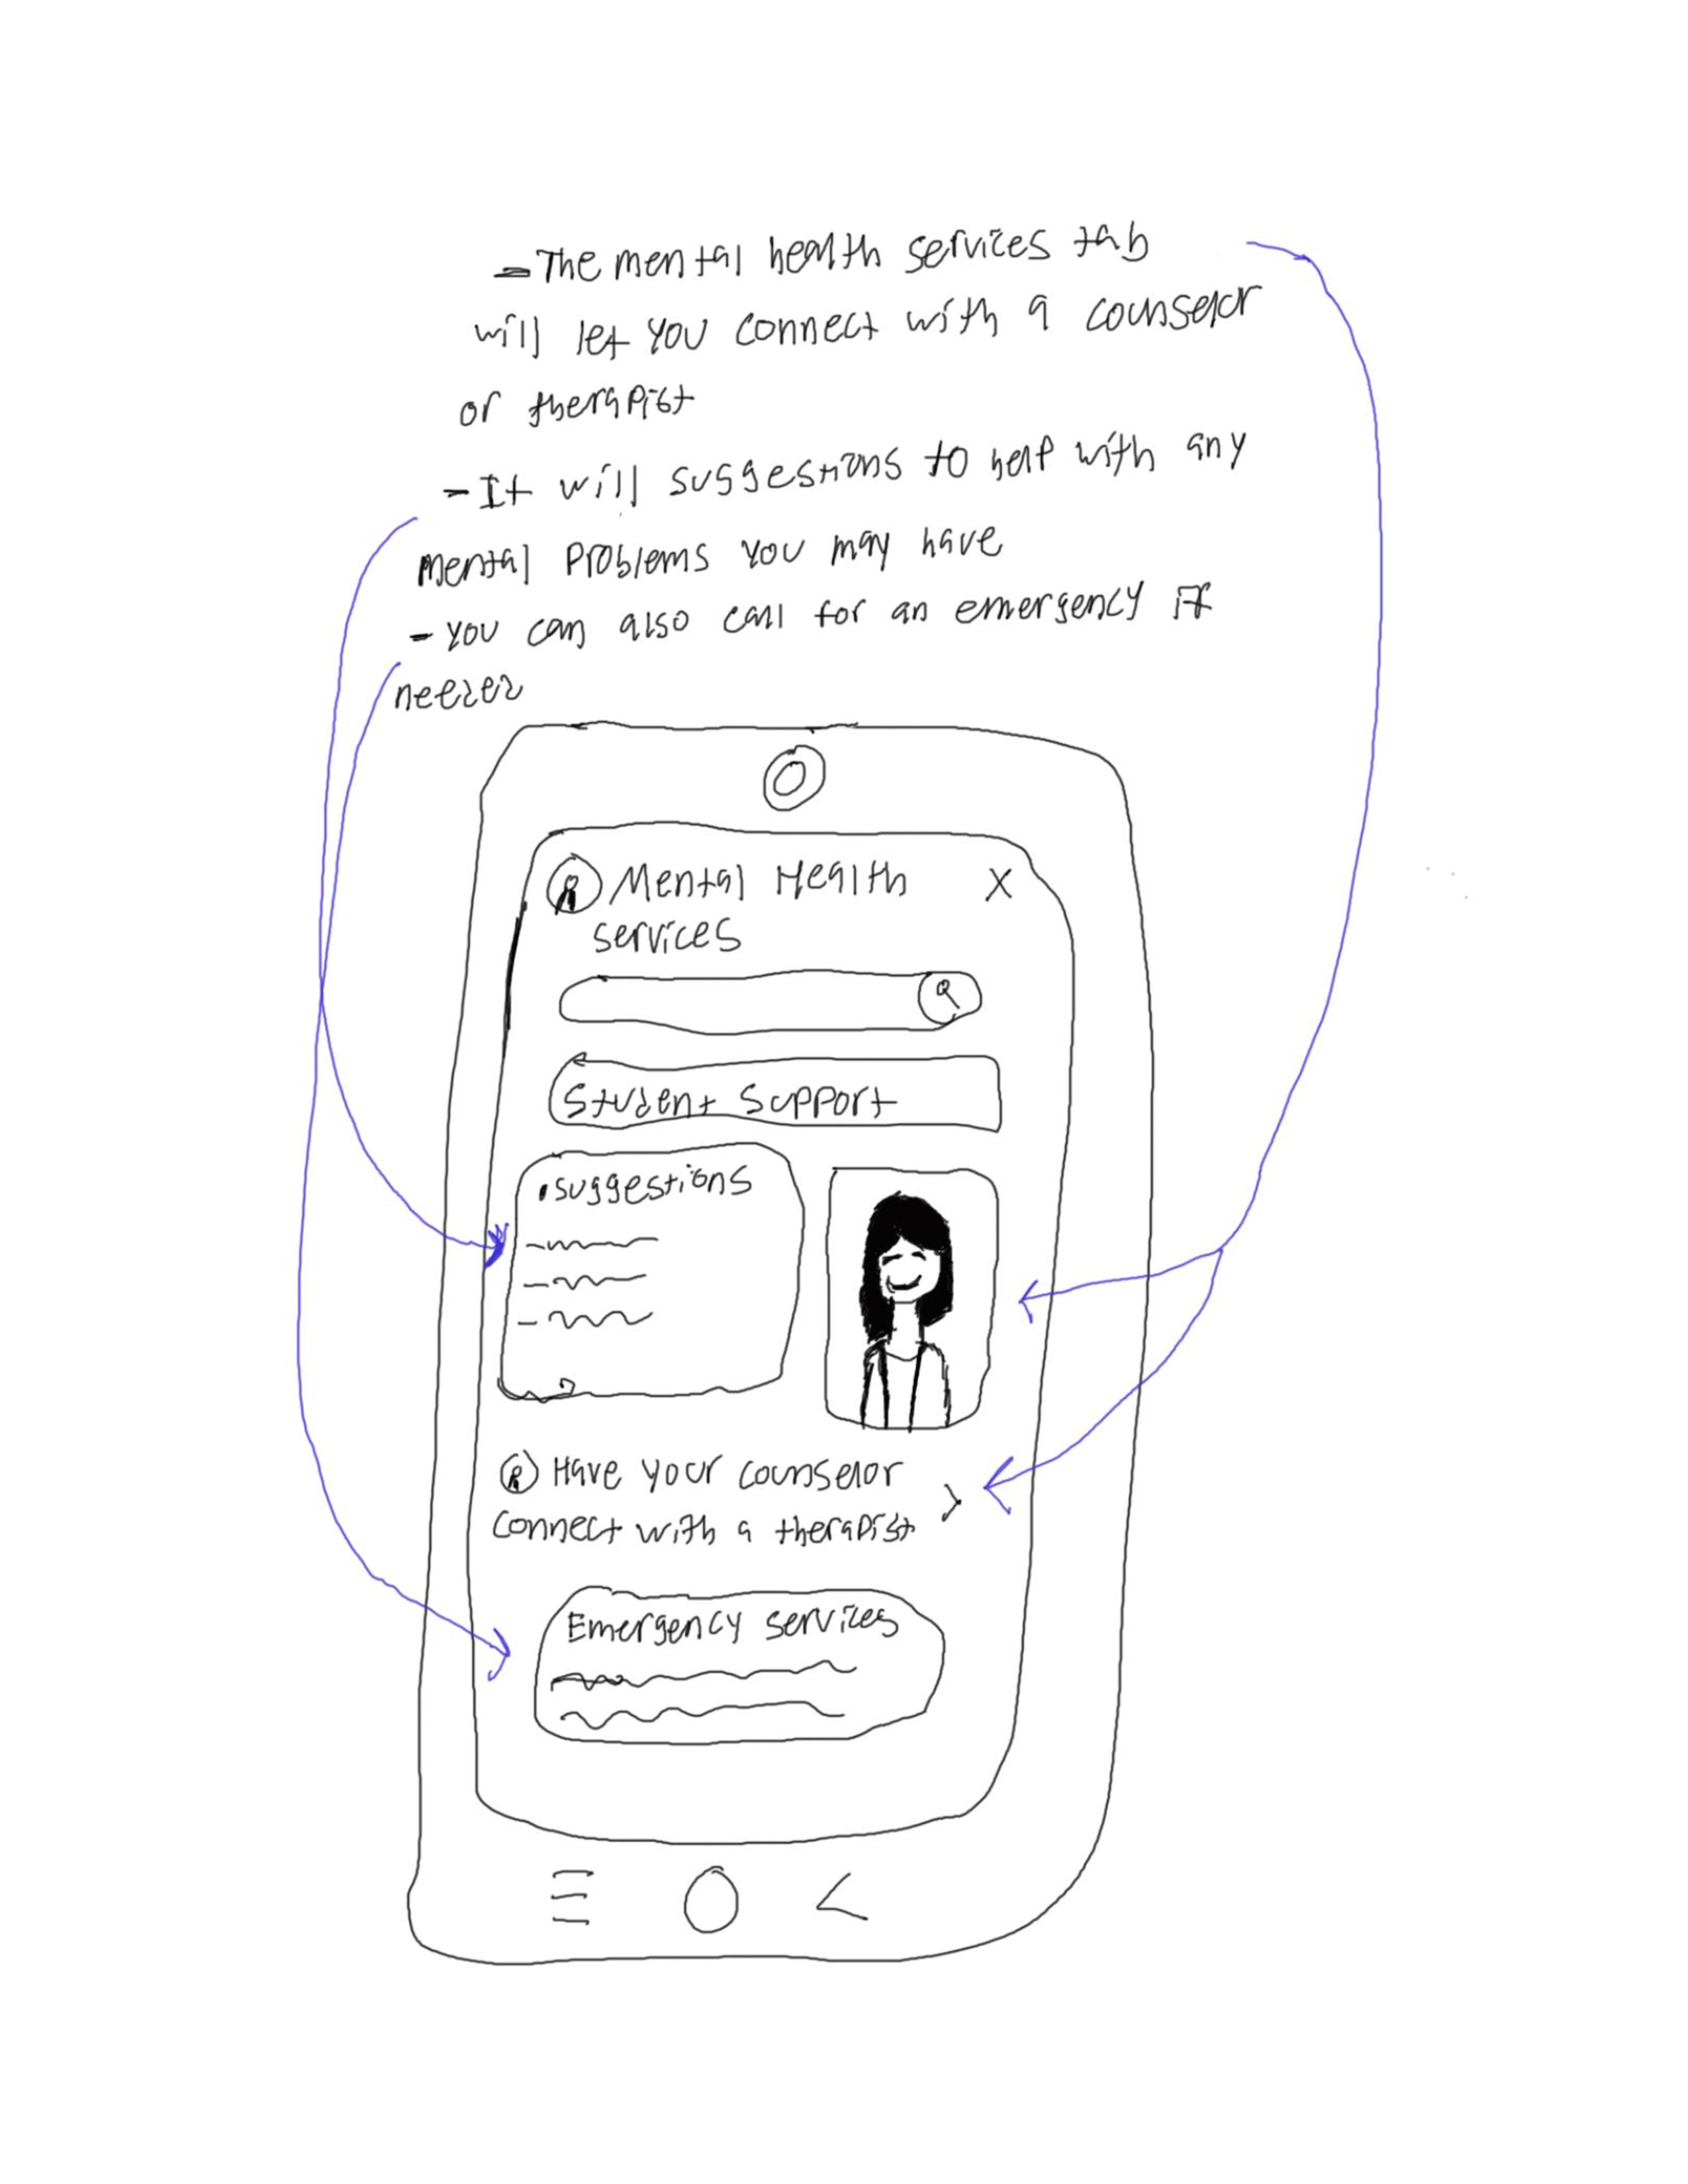 - The mental health services tab
will let you connect with a counselor
or therapist
- It will suggestions to help with any
mental problems you may have
- you can also call for an emergency if
needed
Mental Health X
services
Student Support
• suggestions
Have your counselor
connect with a therapist >
Emergency services